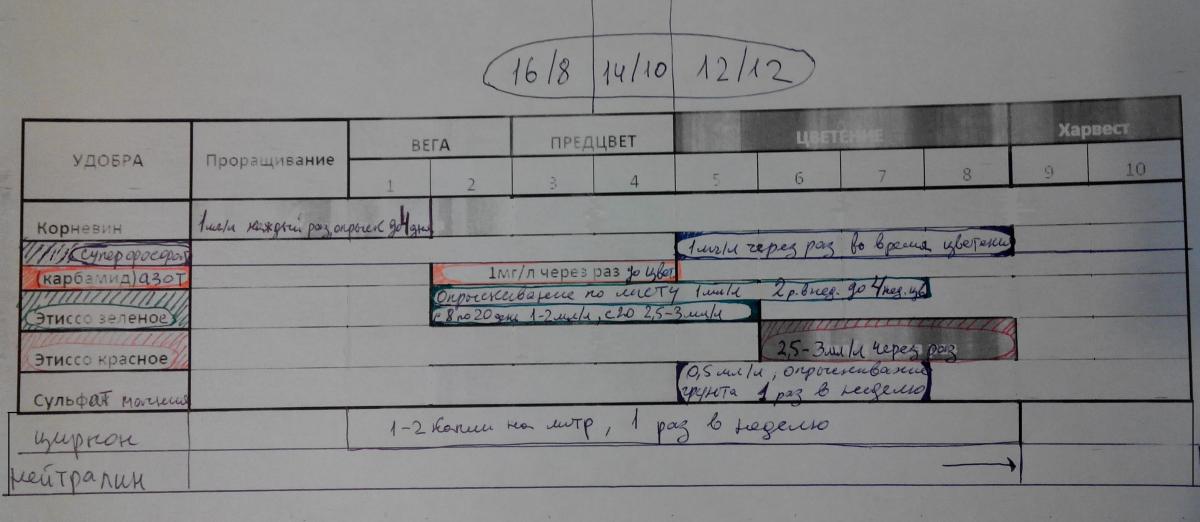 16/8 14/10 12/12
УДОБРА Проращивание ВЕГА ПРЕДЦВЕТ ЦВЕТЕНИЕ Харвест
1 2 3 4 5 6 7 8 9 10
Корневин 1мг/л каждый раз, опрыск до 4 дня
суперфосфат 1мг/л через раз во время цветени
(карбамид) азот 1мг/л через раз до цвет
Опрыскивание по листу 1мл/л 2 р. в нед. до 4 нед. цв
Этиссо зеленое с 8 по 20 день 1-2мл/л, с 20 2,5-3мл/л
Этиссо красное 2,5-3мл/л через раз
0,5 мл/л, опрыскивание
Сульфат магния грунта 1 раз в неделю
циркон 1-2 капли на литр, 1 раз в неделю
нейтралин